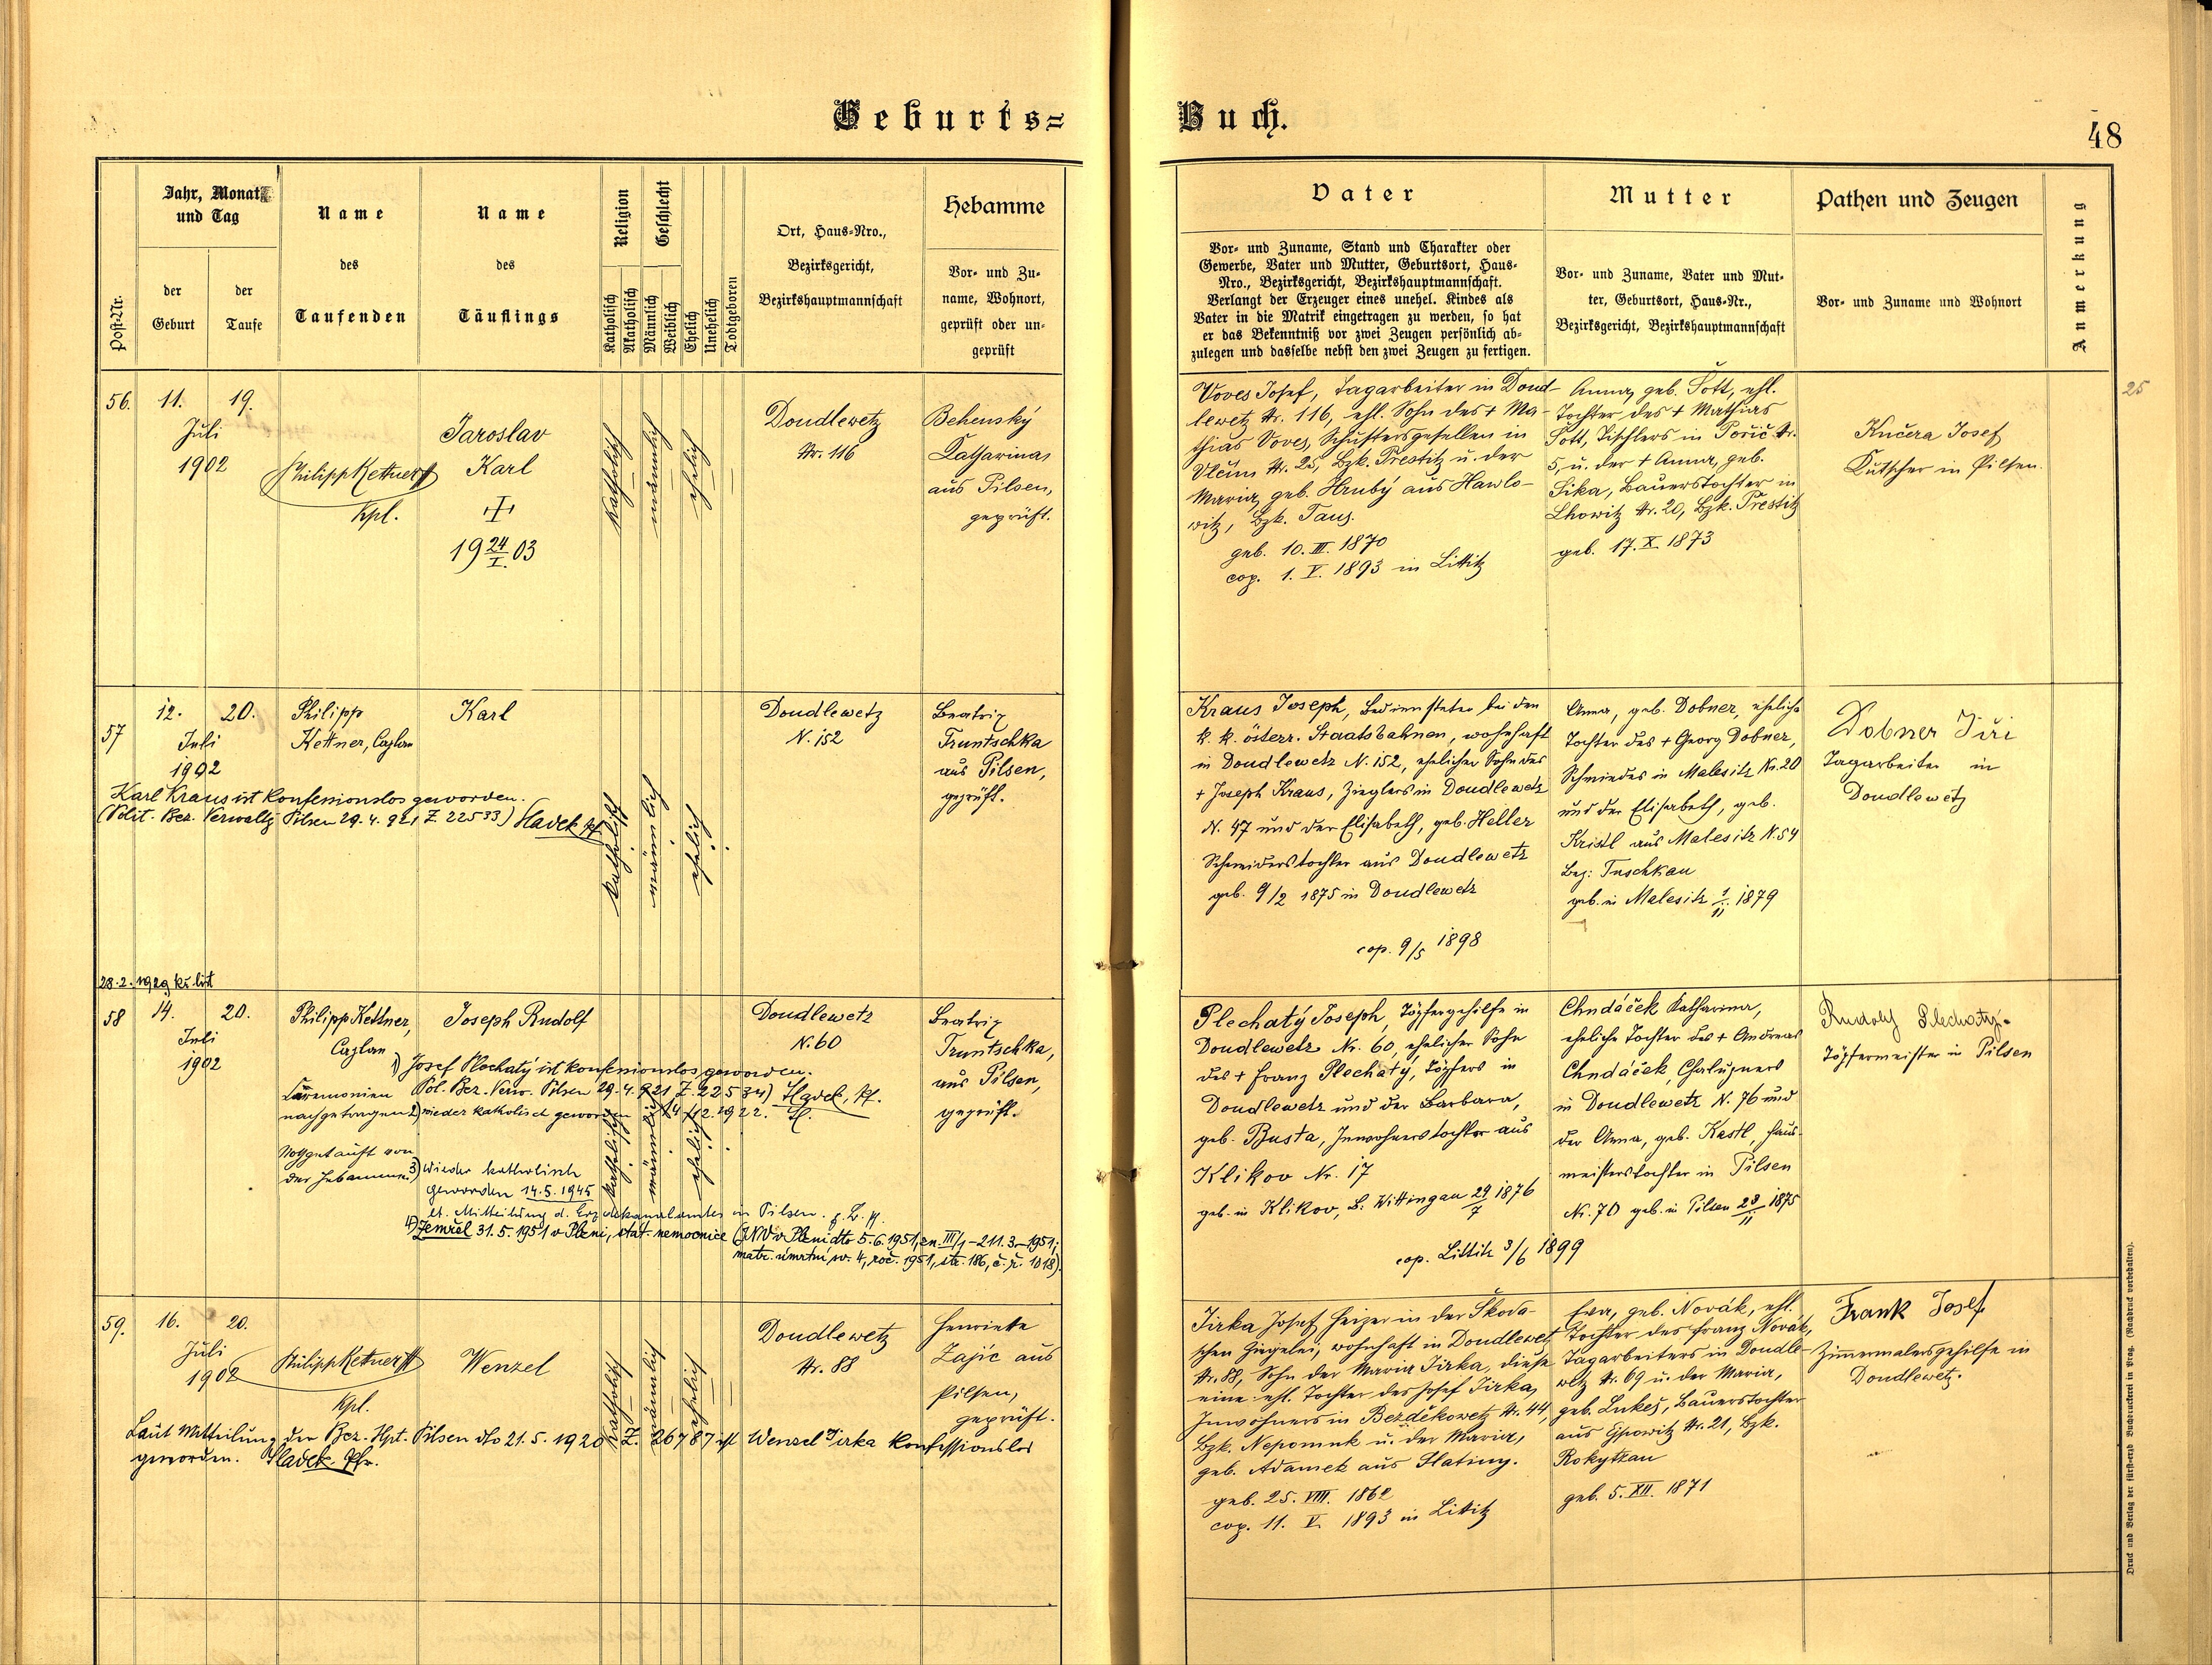 Geburts=
Buch.
48
Post-Nr.
Jahr, Monat
und Tag
der
Geburt
der
Taufe
Name
des
Taufenden
Name
des
Täuflings
Religion
Katholisch
Akatholisch
Geschlecht
Männlich
Weiblich
Ehelich
Unehelich
Todtgeboren
Ort, Haus-Nro.,
Bezirksgericht,
Bezirkshauptmannschaft
Hebamme
Vor- und Zu-
name, Wohnort,
geprüft oder un-
geprüft
Vater
Vor- und Zuname, Stand und Charakter oder
Gewerbe, Vater und Mutter, Geburtsort, Haus-
Nro., Bezirksgericht, Bezirkshauptmannschaft.
Verlangt der Erzeuger eines unehel. Kindes als
Vater in die Matrik eingetragen zu werden, so hat
er das Bekenntniß vor zwei Zeugen persönlich ab-
zulegen und dasselbe nebst den zwei Zeugen zu fertigen.
Mutter
Vor- und Zuname, Vater und Mut-
ter, Geburtsort, Haus-Nr.,
Bezirksgericht, Bezirkshauptmannschaft
Pathen und Zeugen
Vor- und Zuname und Wohnort
Anmerkung
56. 11. 19.
Juli
1902
Philipp Kettner
Kpl.
Jaroslav
Karl
19 24/I. 03
katholisch
männlich
ehelich
Doudlewetz
Nr. 116
Behenský
Katharina,
aus Pilsen,
geprüft.
Voves Josef, Tagarbeiter in Doud-
lewetz Nr. 116, ehl. Sohn des + Ma-
thias Voves, Schustersgesellen in
Vlčim Nr. 25, Bzk. Prestitz u. der
Maria, geb. Hrubý aus Hawlo-
witz, Bzk. Taus.
geb. 10. III. 1870
cop. 1. V. 1893 in Littitz
Anna, geb. Šott, ehl.
Tochter des + Mathias
Šott, Tischlers in Pořič Nr.
5, u. der + Anna, geb.
Sika, Bauerstochter in
Lhowitz Nr. 20, Bzk. Prestitz
geb. 17. X. 1873
Kučera Josef
Kutscher in Pilsen.
25
57 12. 20.
Juli
1902
Philipp
Kettner, Caplan
Karl
Karl Kraus ist konfessionslos geworden.
(Polit. Bez. Verwaltg Pilsen 29. 4. 921 Z. 22533) Havek Pf.
katholisch
männlich
ehelich
Doudlewetz
N. 152
Beatrix
Truntschka
aus Pilsen,
geprüft.
Kraus Joseph, Bediensteter bei den
k. k. österr. Staatsbahnen, wohnhaft
in Doudlewetz N. 152, ehelicher Sohn des
+ Joseph Kraus, Zieglers in Doudlewetz
N. 47 und der Elisabeth, geb. Heller
Schneiderstochter aus Doudlewetz
geb. 9/2 1875 in Doudlewetz
cop. 9/5 1898
Anna, geb. Dobner, eheliche
Tochter des + Georg Dobner,
Schmiedes in Malesitz Nr. 20
und der Elisabeth, geb.
Kristl aus Malesitz N. 54
Bez: Tuschkau
geb. in Malesitz 1/11 1879
Dobner Jiři
Tagarbeiter in
Doudlewetz
28. 2. 1929 kř. list
58 14. 20.
Juli
1902
Philipp Kettner,
Caplan
Joseph Rudolf
1) Josef Plechatý ist konfessionslos geworden.
Pol. Bez. Verw. Pilsen 29. 4. 921 Z. 22534) Havek, Pf.
Ceremonien
nachgetragen
2) wieder katholisch geworden 14/12. 1922. H.
Nothgetauft von
der Hebamme
3) Wieder katholisch
geworden 14. 5. 1945
lt. Mitteilung d. Erzdekanalamtes in Pilsen.
4) Zemřel 31. 5. 1951 v Plzni, stát. nemocnice (JNV v Plzni dto 5. 6. 1951, zn. III/1-211.3-1951;
matr. úmrtní sv. 4, roč. 1951, str. 186, č. ř. 1018).
katholisch
männlich
ehelich
Doudlewetz
N. 60
Beatrix
Truntschka,
aus Pilsen,
geprüft.
Plechatý Joseph, Töpfergehilfe in
Doudlewetz Nr. 60, ehelicher Sohn
des + Franz Plechatý, Töpfers in
Doudlewetz und der Barbara,
geb. Busta, Inwohnerstochter aus
Klikov Nr. 17
geb. in Klikov, B. Wittingau 29/7 1876
cop. Littitz 3/6 1899
Chudáček Katharina,
eheliche Tochter des + Andreas
Chudáček, Chalupners
in Doudlewetz N. 76 und
der Anna, geb. Kastl, Haus-
meisterstochter in Pilsen
Nr. 70 geb. in Pilsen 28/11 1875
Rudolf Plechatý
Töpfermeister in Pilsen
59. 16. 20.
Juli
1902
Philipp Kettner
Kpl.
Wenzel
Laut Mitteilung der Bez. Hpt. Pilsen dto 21. 5. 1920 Z. 26787 ist Wenzel Jirka konfessionslos
geworden. Havek. Pfr.
katholisch
männlich
ehelich
Doudlewetz
Nr. 88
Henriette
Zajíc aus
Pilsen,
geprüft.
Jirka Josef, Heizer in der Škoda-
schen Ziegelei, wohnhaft in Doudlewetz
Nr. 88, Sohn der Maria Jirka, diese
eine ehl. Tochter des Josef Jirka,
Inwohners in Bezděkowetz Nr. 44,
Bzk. Nepomuk u. der Maria,
geb. Adamek aus Slatiny.
geb. 25. VIII. 1862
cop. 11. V. 1893 in Littitz
Eva, geb. Novák, ehl.
Tochter des Franz Novák,
Tagarbeiters in Doudle-
wetz Nr. 69 u. der Maria,
geb. Lukeš, Bauerstochter
aus Ejpowitz Nr. 21, Bzk.
Rokytzan
geb. 5. XII. 1871
Frank Josef
Zimmermalersgehilfe in
Doudlewetz.
Druck und Verlag der fürst-erzb. Buchdruckerei in Prag. (Nachdruck vorbehalten).